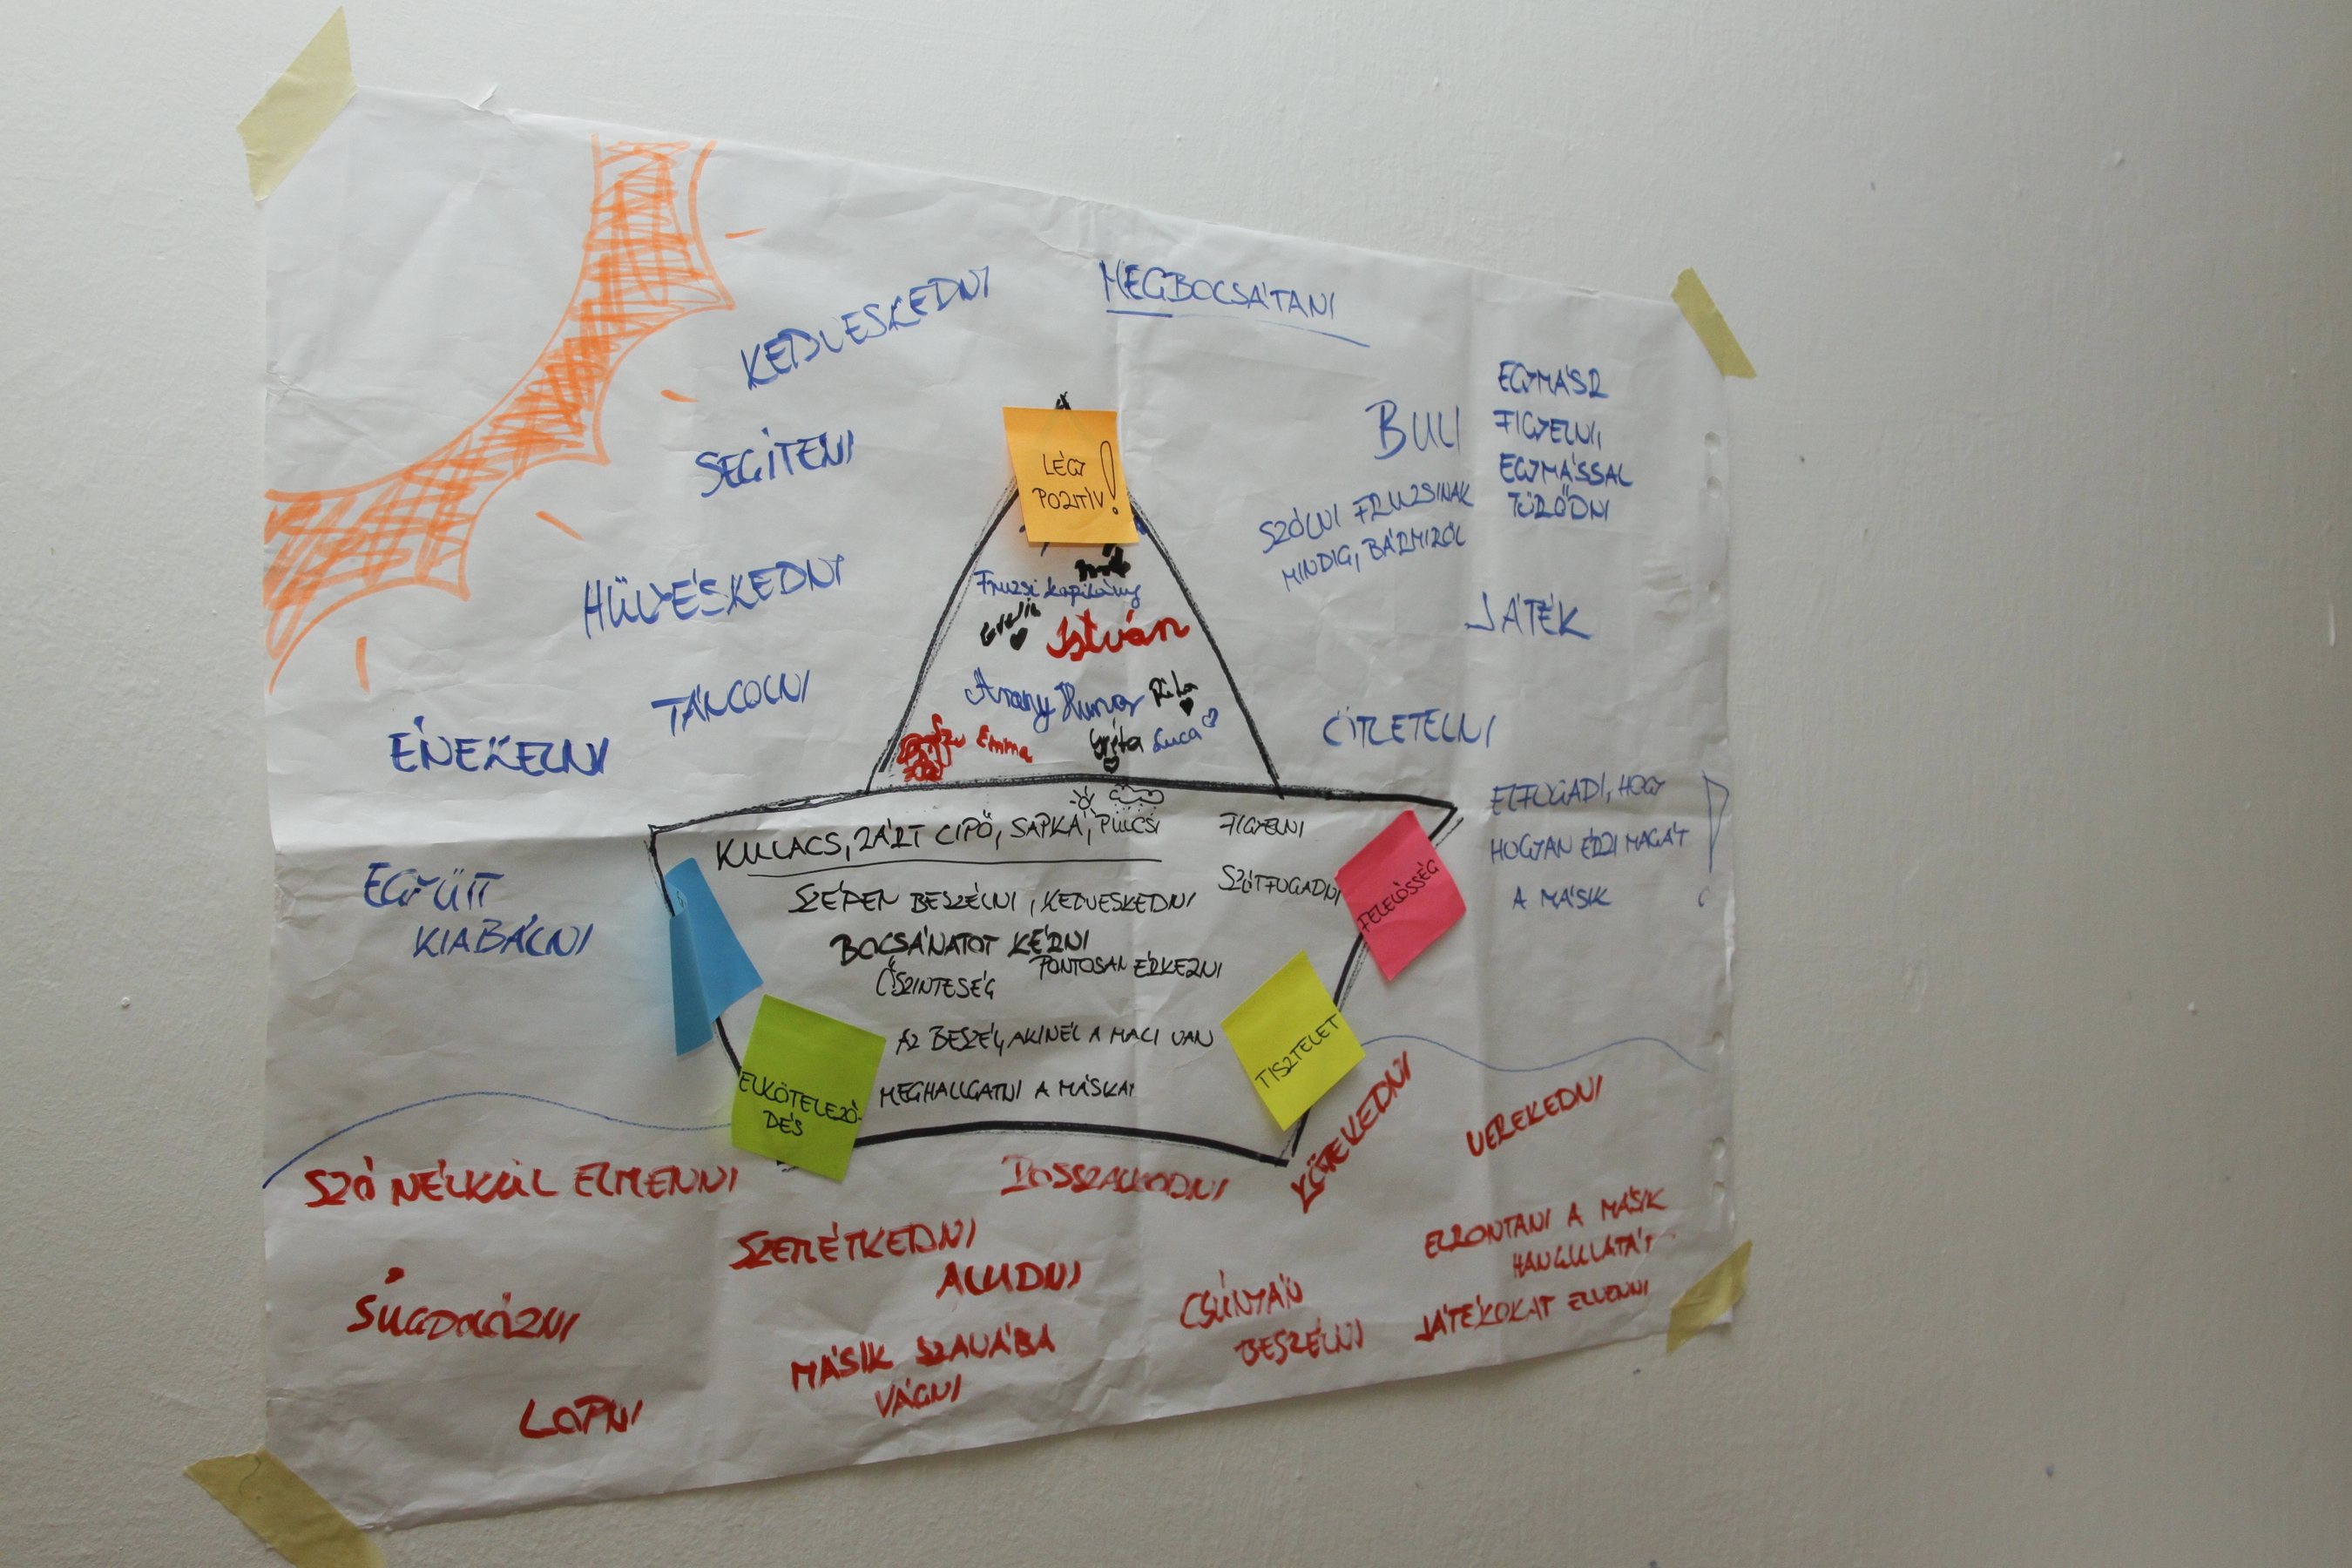 KEDVESKEDNI
MEGBOCSÁTANI
SEGÍTENI
HÜLYÉSKEDNI
TÁNCOLNI
ÉNEKELNI
EGYÜTT
KIABÁLNI
BULI
EGYMÁSR
FIGYELNI,
EGYMÁSSAL
TÖRŐDNI
SZÓLNI FRUZSINAK
MINDIG, BÁRMIRŐL
JÁTÉK
ÖTLETELNI
ELFOGADI, HOGY
HOGYAN ÉRZI MAGÁT
A MÁSIK
LÉGY
POZITÍV!
Fruzsi kapitány
István
Arany Hunor Rita
Emma Gréta Luca
KULACS, ZÁRT CIPŐ, SAPKA, PULCSI
FIGYELNI
SZÓTFOGADNI
SZÉPEN BESZÉLNI, KEDVESKEDNI
BOCSÁNATOT KÉRNI
PONTOSAN ÉRKEZNI
ŐSZINTESÉG
AZ BESZÉL, AKINÉL A MACI VAN
MEGHALLGATNI A MÁSKAT
FELELŐSSÉG
TISZTELET
ELKÖTELEZŐ-
DÉS
SZÓ NÉLKÜL ELMENNI
ROSSZALKODNI
KÖTEKEDNI
VEREKEDNI
SZEMÉTKEDNI
ALUDNI
SUGDOLÓZNI
LOPNI
MÁSIK SZAVÁBA
VÁGNI
CSÚNYÁN
BESZÉLNI
ELRONTANI A MÁSIK
HANGULATÁT
JÁTÉKOKAT ELVENNI